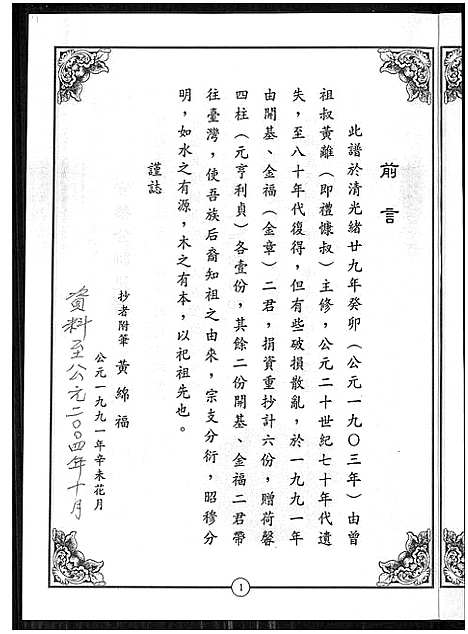 前言
此譜於清光緒廿九年癸卯（公元一九０三年）由曾
祖叔黃離（即禮慷叔）主修，公元二十世紀七十年代遺
失，至八十年代復得，但有些破損散亂，於一九九一年
由開基、金福（金章）二君，捐資重抄計六份，贈荷馨
四柱（元亨利貞）各壹份，其餘二份開基、金福二君帶
往臺灣，使吾族后裔知祖之由來，宗支分衍，昭穆分
明，如水之有源，木之有本，以祀祖先也。
謹誌
抄者附筆　黃綿福
公元一九九一年辛未花月
資料至公元二００四年十月
1